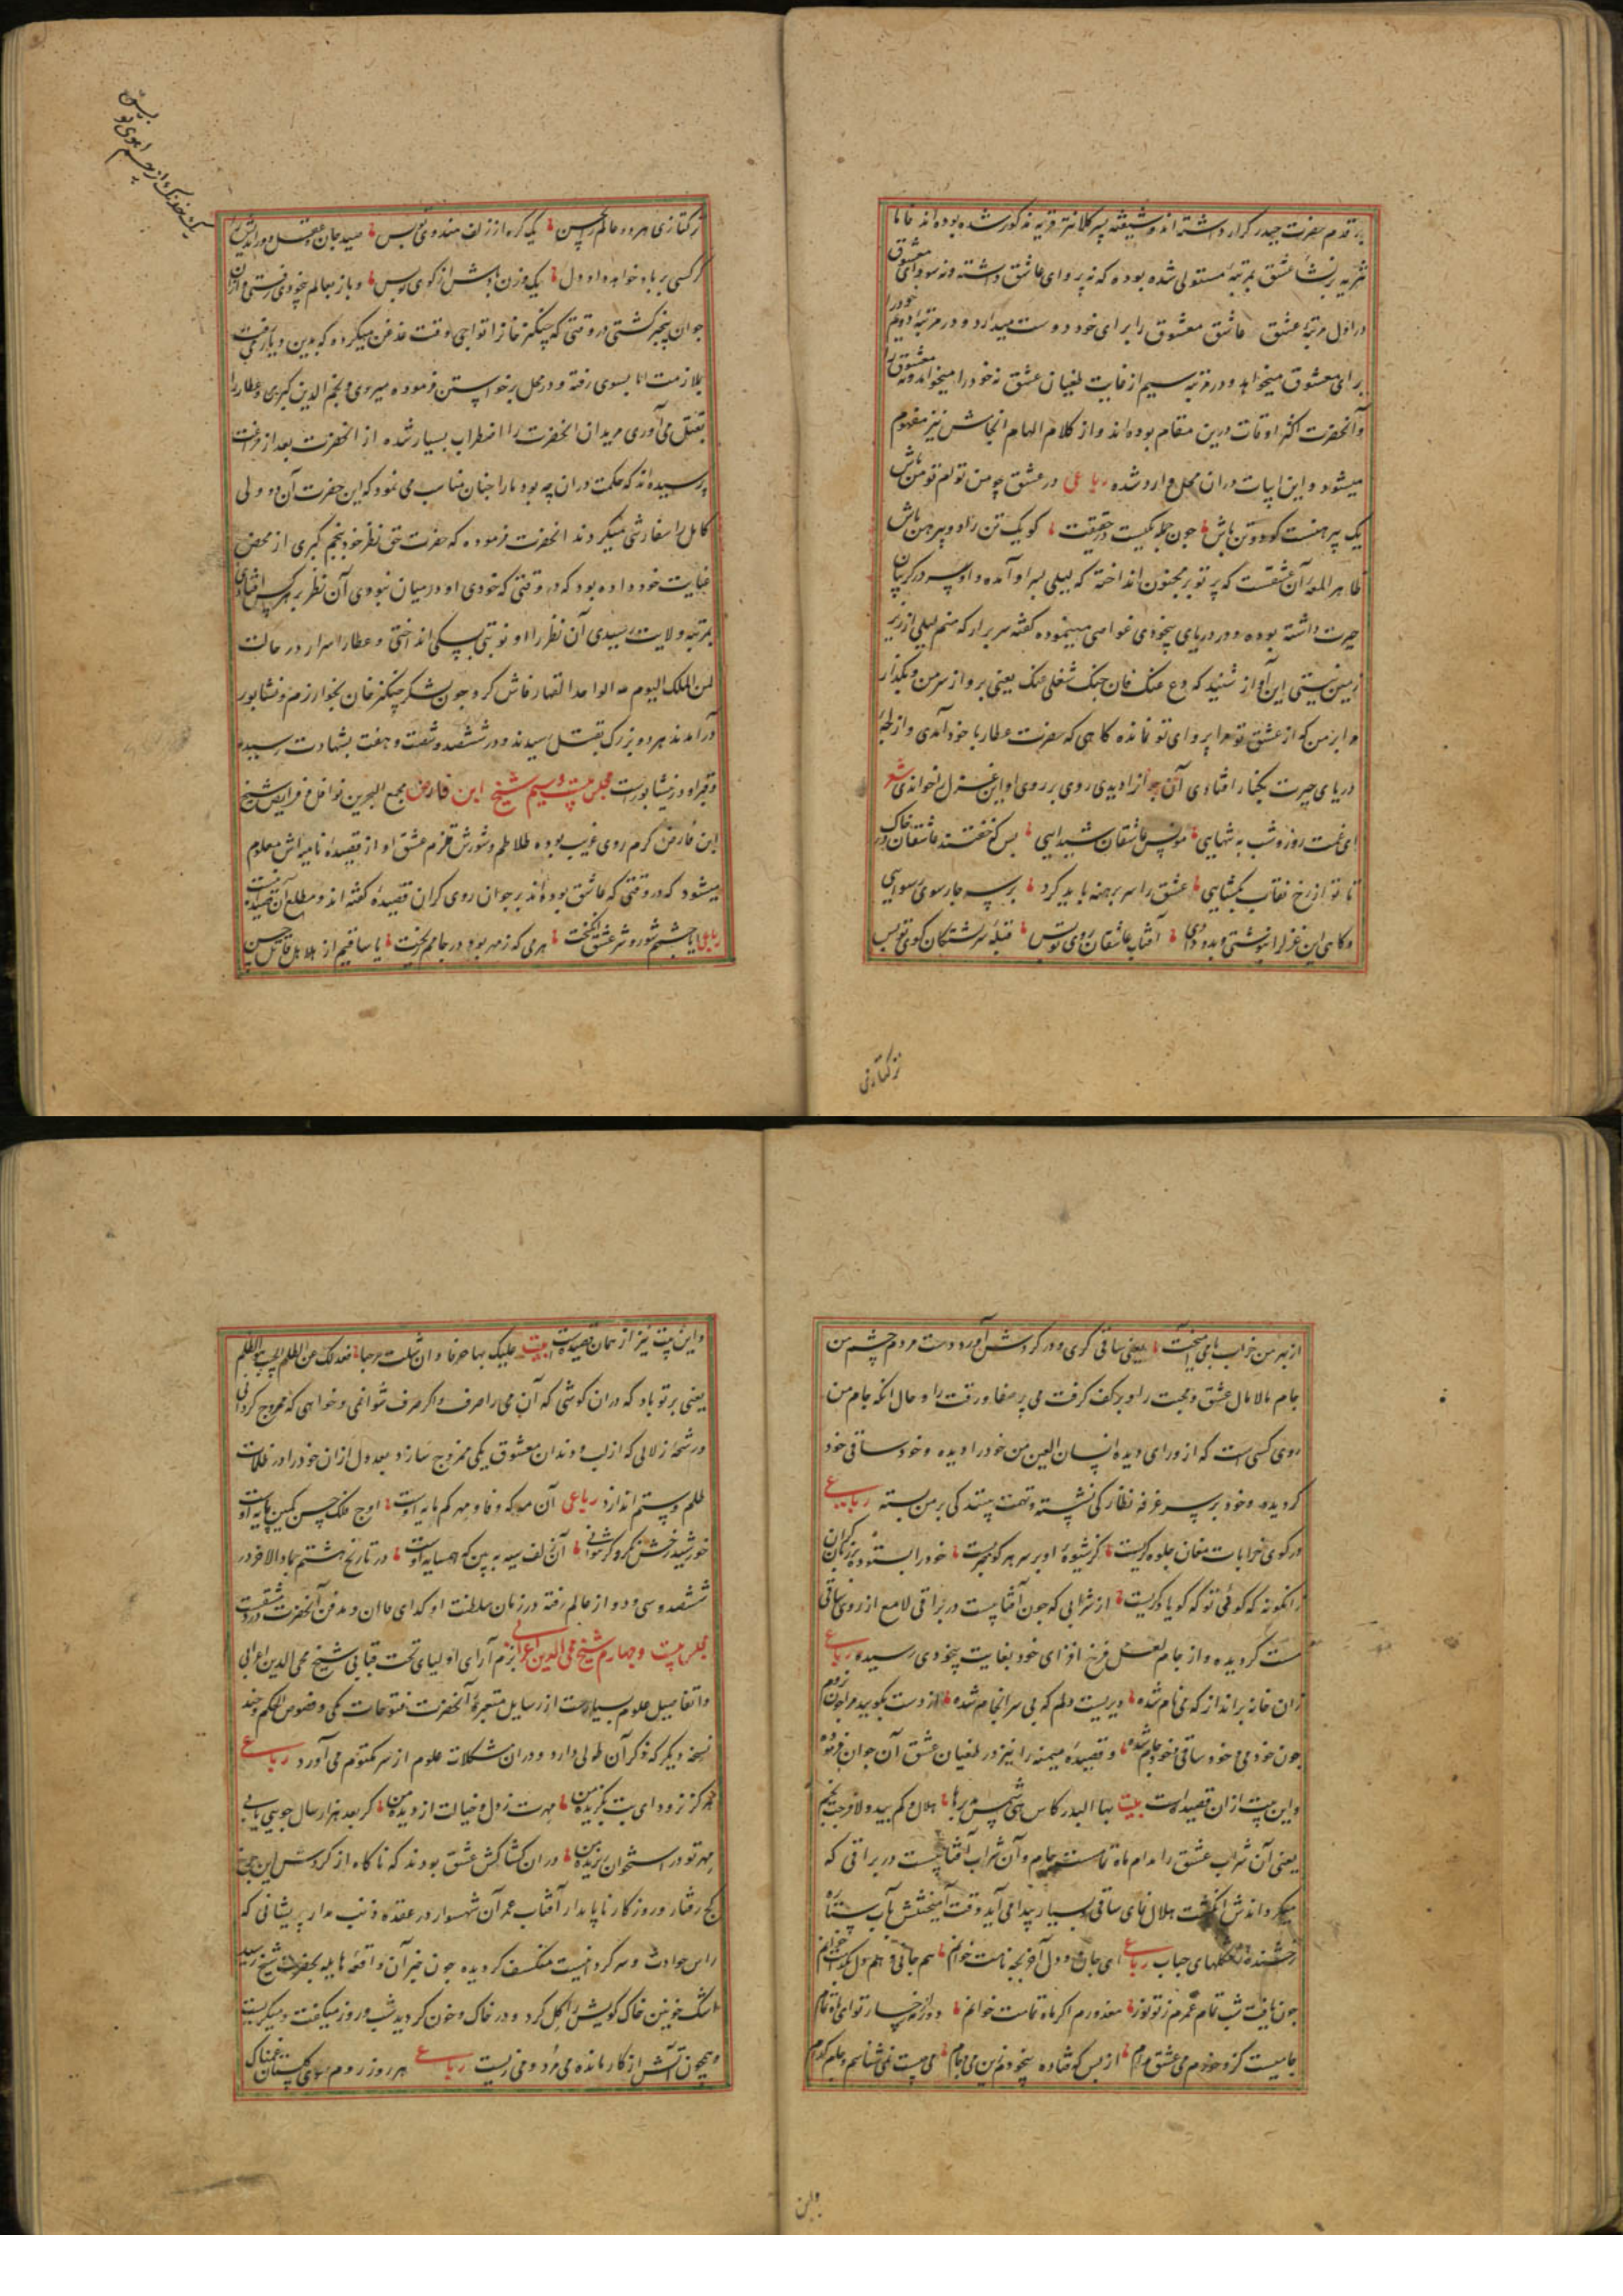 بر قدم حضرت حیدر کرار داشته اند و شیفته پسر کلانتر قریه مذکور شده بوده اند خانا
عشق بمرتبهٔ مستولی شده بوده که نه پروای عاشق داشته و نه سودای معشوق
در اول مرتبهٔ عشق عاشق معشوق را برای خود دوست میدارد و در مرتبه دویم خود را
برای معشوق میخواهد و در مرتبه سیم از غایت طغیان عشق نه خود را میخواهد و نه معشوق را
و آنحضرت اکثر اوقات درین مقام بوده اند و از کلام الهام انجامش نیز مفهوم
میشود و این ابیات دران محل وارد شده رباعی در عشق چو من توام تو من باش
یک پیرهنست کو دو تن باش چون جمله یکیست در حقیقت کو یک تن را دو پیرهن باش
ظاهر المعهٔ آن عشقست که پرتو بر مجنون انداخته که لیلی بسر او آمده و او سر در گریبان
حیرت داشته بوده و در دریای بیخودی غواصی مینموده گفته سر برار که منم لیلی از زیر
زمین نیستی این آواز شنید که دع عنک فان حبک شغلی عنک یعنی برو از سر من و بگذار
مرا بر من که از عشق تو مرا پروای تو نمانده گاهی که حضرت عطار با خود آمدی و از لجهٔ
دریای حیرت بکنار افتادی آن جوانرا دیدی روی بر روی او این غزل خواندی شعر
ای غمت روز و شب به تنهایی مونس عاشقان شیدایی بس که خفتند عاشقان در خاک
تا تو از رخ نقاب بگشایی عشق را سر برهنه باید کرد بر سر چارسوی رسوایی
و گاهی این غزل را بنوشتی و بدو دادی آفتاب عاشقان روی تو بس قبلهٔ سرگشتگان کوی تو بس
ترکتازی
یک خدنگ از جسم آهوی تو بس
ترکتازی هر دو عالم را پسین یک گره از زلف هندوی تو بس صید جان و عقل دور اندیش را
گر کسی بر باد خواهد داد دل یک وزن بادش از کوی تو بس و باز بعالم بیخودی رفتی و ازان
جوان بیخبر گشتی در وقتی که چنگیز خانرا تواجی وقت غدغن میکرده که بدین دیار رفت
بملازمت انا بسوی رفته و در محل برخواستن فرموده میروی و نجم الدین کبری و عطار را
بقتل می آوری مریدان انحضرت را اضطراب بسیار شده از انحضرت بعد از فراغت
پرسیده اند که حکمت دران چه بود ما را چنان مناسب می نمود که این حضرت آن دو ولی
کامل را سفارشی میکردند انحضرت فرموده که حضرت حق نظر خود بنجم کبری از محض
عنایت خود داده بود که در وقتی که خودی او در میان نبودی آن نظر بر هر کس افتادی
بمرتبه ولایت رسیدی آن نظر را او نوبتی بسگی انداختی و عطار اسرار در حالت
لمن الملک الیوم لله الواحد القهار فاش کرد و چون لشکر چنگیز خان بخوارزم و نشابور
درآمدند هر دو بزرگ بقتل رسیدند و در ششصد و شصت و هفت بشهادت رسیده
و قبر او در نیشابورست مجلس بیست و سیم شیخ ابن فارض مجمع البحرین نوافل و فرایض شیخ
ابن فارض گرم روی غریب بوده طلاطم و شورش قلزم عشق او از قصیدهٔ تائیه اش معلوم
میشود که در وقتی که عاشق بوده اند بر جوان روی گران قصیدهٔ گفته اند و مطلع آن قصیده اینست
رباعی با چشم شور و شر عشق انگیخت هر می که زهر بود در جامم ریخت یا ساقیم از هلاهل قاتل حسن
از بهر من خراب با می آمیخت یعنی ساقی گری و در گردش آورد دست مردم چشم من
جام مالامال عشق و محبت را و بر کف گرفت می پر صفا و رقت را و حال انکه جام من
روی کسی است که از ورای دیده انسان العین من خود را دیده و خود ساقی خود
گردیده و خود بر سر غرفه نظارگی نشسته و تهمت بیننده گی بر من بسته رباعی
در کوی خرابات مغان جلوه گریست کز شیوهٔ او بر سر هر کو خبریست خود را بستوده بر زبان دگران
زانگونه که گوئی تو که گویا دگریست از شرابی که چون آفتابیست در براقی لامع از روی ساقی
مست گردیده و از جام لعل فرخ افزای خود بغایت بیخودی رسیده رباعی
زان خانه برانداز که می نام شده دیریست دلم که بی سرانجام شده از دست بگویید مرا چون نروم
چون خود می و خود ساقی و خود جام شده و قصیدهٔ میمیه را نیز در طغیان عشق آن جوان فرموده
و این بیت ازان قصیده است بیت لها البدر کاس وهی شمس یدیرها هلال و کم یبدو اذا مزجت نجم
یعنی آن شراب عشق را مدام ماه تمامست جام و آن شراب آفتابیست در براقی که
میگرداندش انگشت هلال نمای ساقی و بسیار پیدا می آید وقت آمیختنش بآب ستاره
رخشنده از شکلهای حباب رباعی ای جان و دل آخر بچه نامت خوانم هم جانی و هم دل بکدامت خوانم
چون یافت شب تمام عمرم ز تو نور معذورم اگر ماه تمامت خوانم دور از رخسار تو ای ماه تمام
جامیست کزو خورم می عشق مدام از بس که فتاده بیخودم زین می و جام می چیست نمی شناسم و جام کدام
واین
واین بیت نیز از همان قصیده است بیت علیک بها صرفا و ان شئت مزجها فعدلک عن ظلم الحبیب هو الظلم
یعنی بر تو باد که دران کوشی که آن می را صرف و اگر صرف نتوانی و خواهی که ممزوج گردانی
ورشحه زلالی که از لب و دندان معشوق یکی ممزوج سازد و بعدول ازان خود را در ظلمات
ظلم و ستم اندازد رباعی آن مه که وفا و مهر کم مایه اوست اوج فلک حسن کمین پایه اوست
خورشید رخش نگر و گر نتوانی آن زلف سیه ببین که همسایه اوست در تاریخ هشتم جماد الاخر در
ششصد و سی و دو از عالم رفته در زمان سلطنت او کدای خاان و مدفن آنحضرت در دمشقست
مجلس بیست و چهارم شیخ محی الدین اعرابی بزم آرای اولیای تحت قبابی شیخ محی الدین اعرابی
واتفاصیل علوم بسیارست از رسایل متبحرهٔ آنحضرت فتوحات مکی و فصوص الحکم و چند
نسخه دیگر که ذکر آن طولی دارد و دران مشکلات علوم از سر مکتوم می آورد رباعی
هرگز نرود ای بت بگزیدهٔ من مهرت ز دل و خیالت از دیدهٔ من گر بعد هزار سال جویی یابی
مهر تو در استخوان بوسیدهٔ من دران کشاکش عشق بودند که ناگاه از گردش این چرخ
کج رفتار و روزگار ناپایدار آفتاب عمر آن شهسوار در عقده ذنب مدار پریشانی که
راس حوادث و سرگردانیست منکسف گردیده چون خبر آن واقعه هایله بحضرت شیخ رسید
اشک خونین خاک کویش را گل کرد و در خاک و خون گردید شب و روز میگفت و میگریست
و همچون آتش از کار مانده می مرد و می زیست رباعی هر روز روم سوی گلستان غمناک